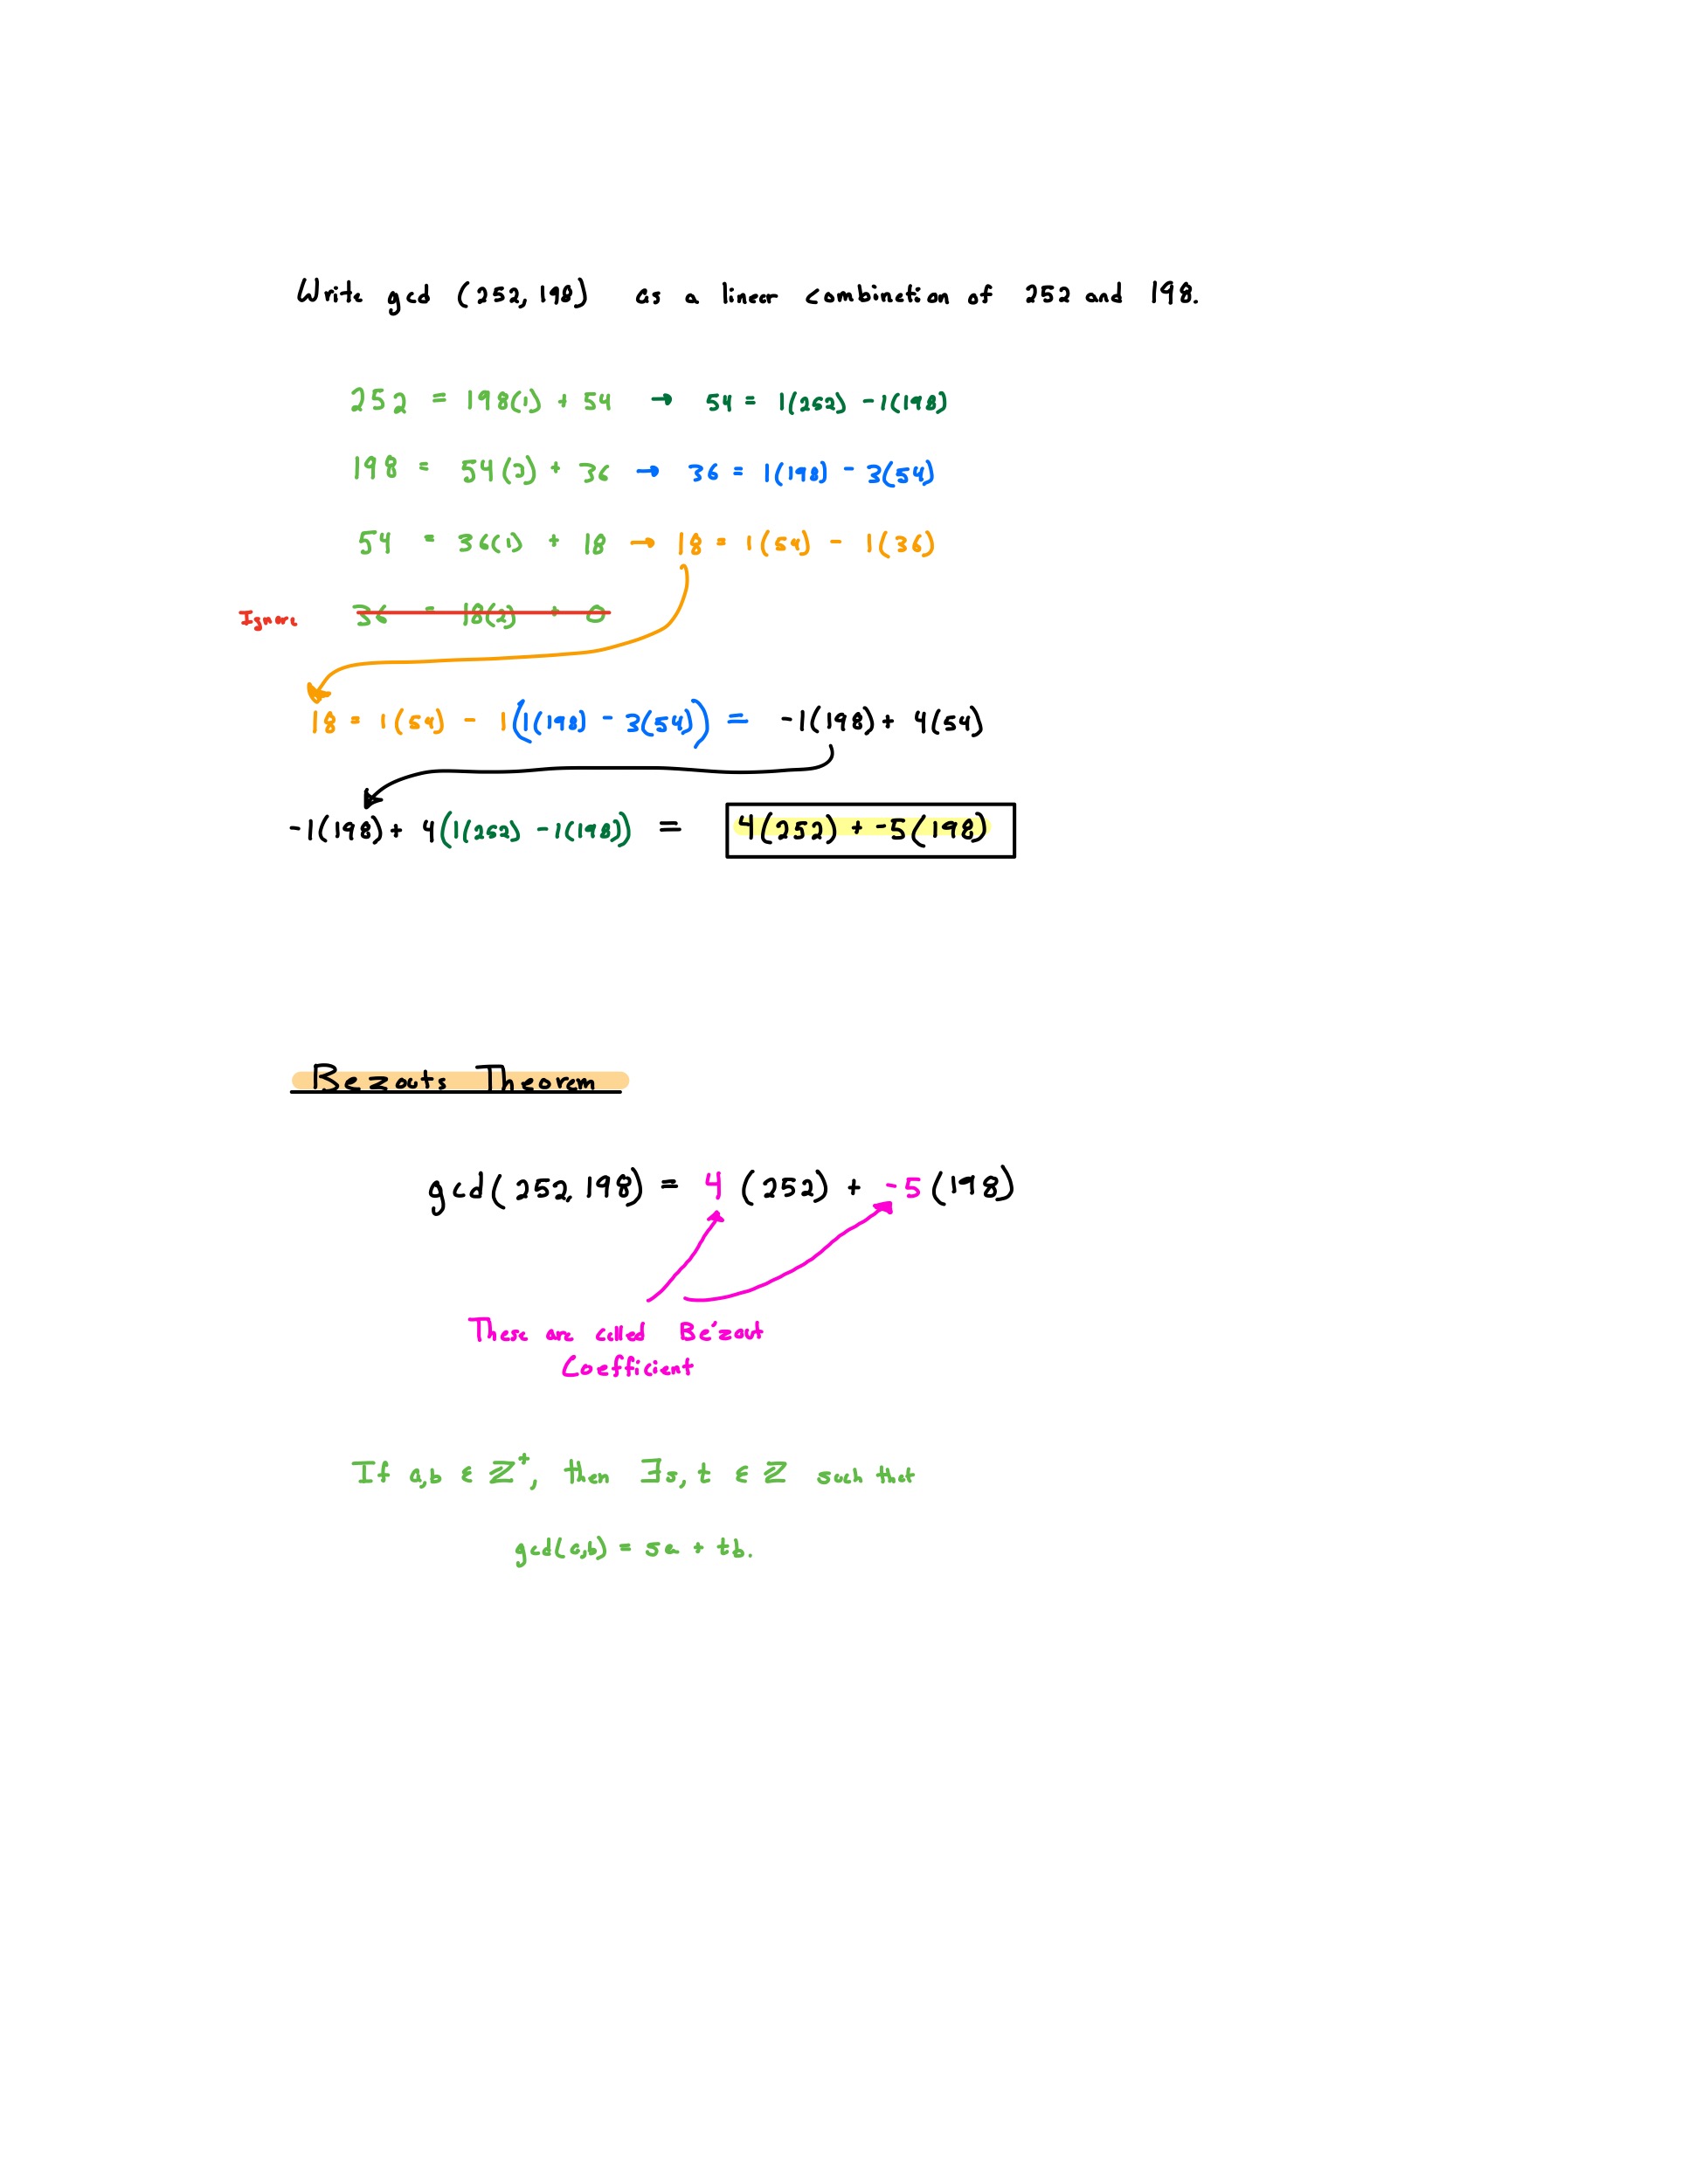 Write gcd (252, 198) as a linear combination of 252 and 198.
252 = 198(1) + 54 → 54 = 1(252) - 1(198)
198 = 54(3) + 36 → 36 = 1(198) - 3(54)
54 = 36(1) + 18 → 18 = 1(54) - 1(36)
Ignore 36 = 18(2) + 0
18 = 1(54) - 1(1(198) - 3(54)) = -1(198) + 4(54)
-1(198) + 4(1(252) - 1(198)) = 4(252) + -5(198)
Bezouts Theorem
gcd(252, 198) = 4 (252) + -5 (198)
These are called Be'zout
Coefficient
If a,b ∈ ℤ⁺, then ∃s, t ∈ ℤ such that
gcd(a,b) = sa + tb.